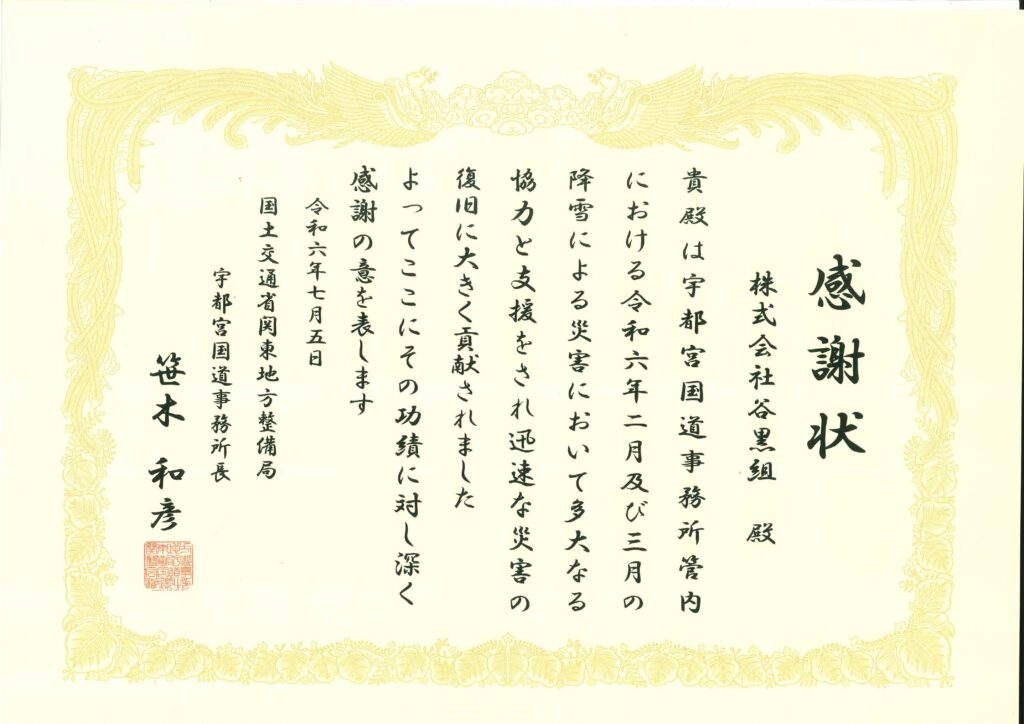 感謝状
株式会社谷黒組　殿
貴殿は宇都宮国道事務所管内
における令和六年二月及び三月の
降雪による災害において多大なる
協力と支援をされ迅速な災害の
復旧に大きく貢献されました
よってここにその功績に対し深く
感謝の意を表します
令和六年七月五日
国土交通省関東地方整備局
宇都宮国道事務所長
笹木　和彦